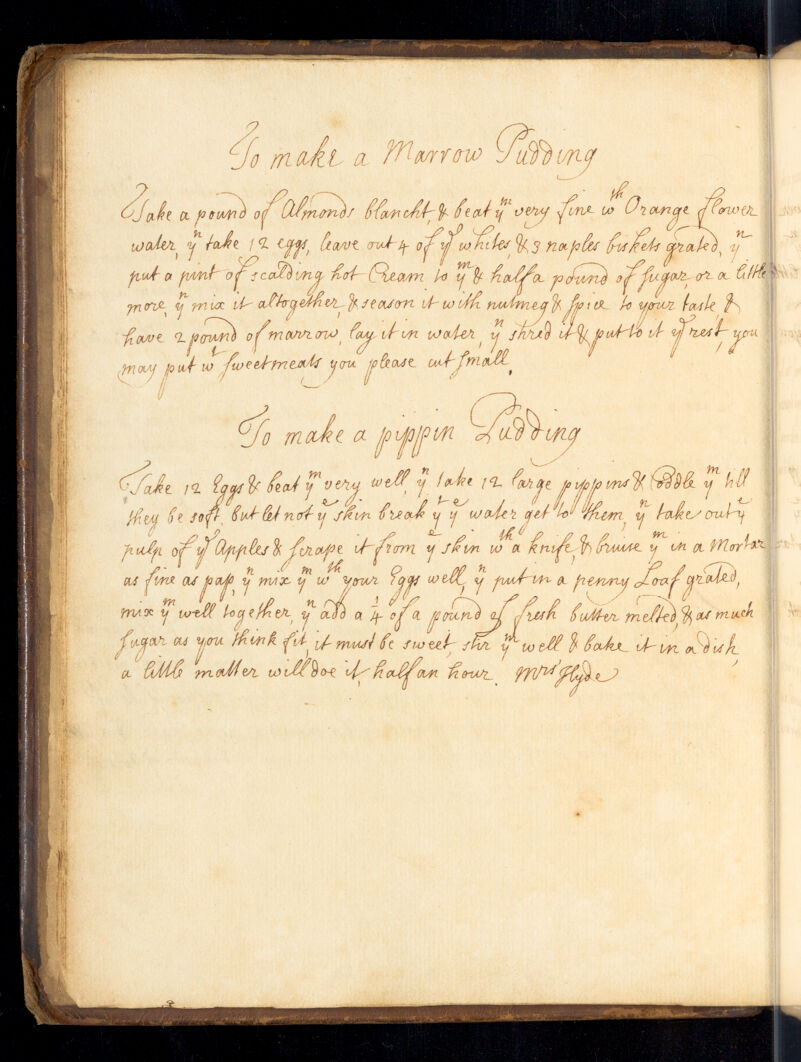 To make a Marrow Pudding
Take a pound of Almonds blancht, & beat yᵐ very fine wᵗʰ Orange flower
water, yⁿ take 12 eggs, leave out 4 of yᵉ whites, & 3 naples biskets grated, yⁿ
put a pint of scalding hot Cream to yᵐ & half a pound of sugar, or a little
more, yⁿ mix it altogether, & season it with nutmeg & spice to your taste, &
have 2 pound of marrow, lay it in water, yⁿ shred it & put to it yᵉ rest, you
may put wᵗ sweetmeats you please cut small.
To make a pippin Pudding
Take 12 Eggs & beat yᵐ very well, yⁿ take 12 large pyppins & Coddle yᵐ till
they be soft, but let not yᵉ skin break yᵗ yᵉ water get to them, yⁿ take out yᵉ
pulp of yᵉ Apples & scrape it from yᵉ skin wᵗʰ a knife, & bruise yᵐ in a Mortar
as fine as pap, yⁿ mix yᵐ wᵗʰ your Eggs well, yⁿ put in a penny Loaf grated,
mix yᵐ well together, yⁿ add a ¼ of a pound of fresh butter melted, & as much
sugar as you think fit, it must be sweet, stir yᵐ well & bake it in a dish,
a little matter will doe it, half an hour. Mʳˢ Hyde